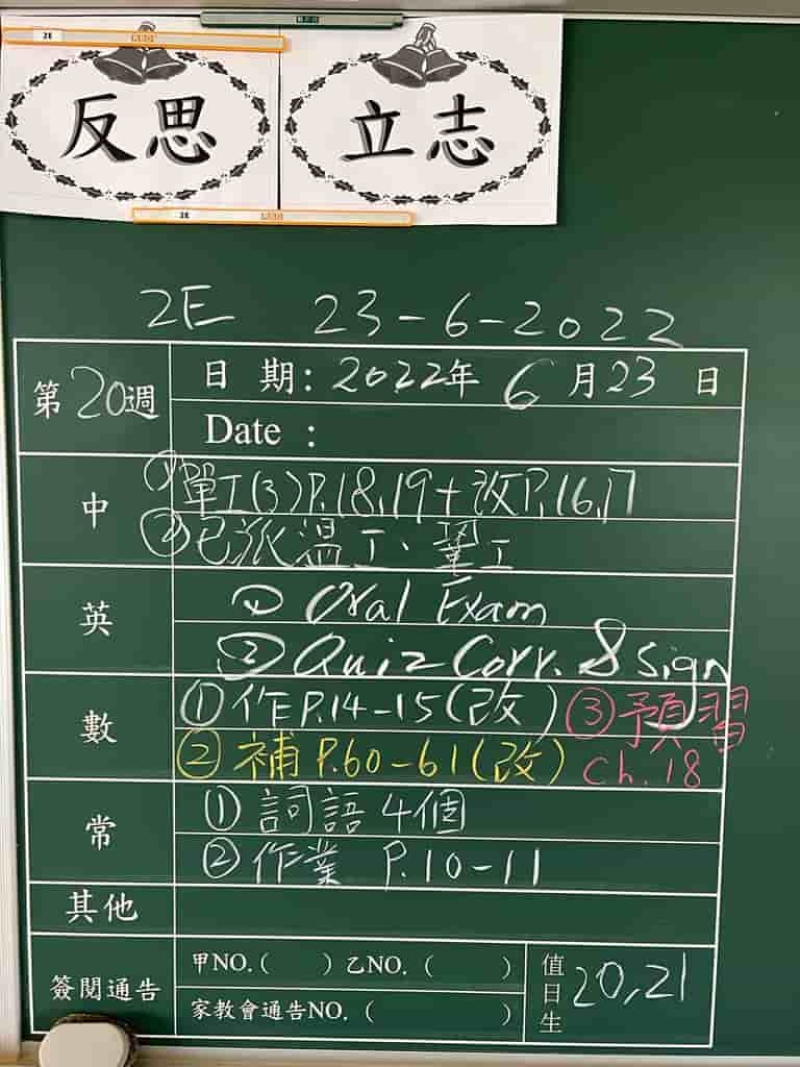 反思 立志
2E 23-6-2022
第20週
日期：2022年6月23日
Date：
中
①單工(3)P.18,19+改P.16,17
②已派溫工、鞏工
英
① Oral Exam
② Quiz Corr. & Sign
數
①作P.14-15(改) ③預習
②補P.60-61(改) Ch.18
常
①詞語4個
②作業 P.10-11
其他
簽閱通告
甲NO.( ) 乙NO.( )
家教會通告NO.( )
值日生
20,21